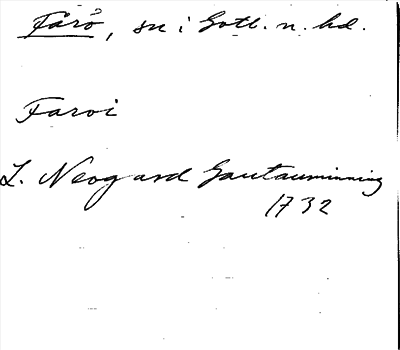 Fårö, sn i Gotl. n. hd.
Faroi
L. Neogard Gautauminning
1732